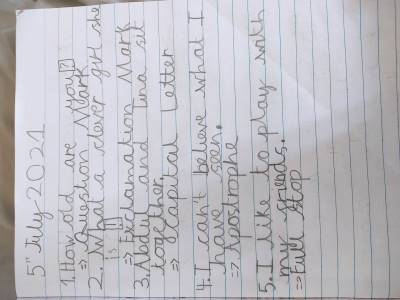 5th July 2021
1. How old are you?
⇒ Question Mark
2. What a clever girl she
is !
⇒ Exclamation Mark
3. Abdul and Tina sit
together.
⇒ Capital Letter
4. I can't believe what I
have seen.
⇒ Apostrophe
5. I like to play with
my friends.
⇒ Full Stop